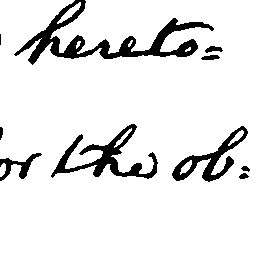 hereto=
or the ob: